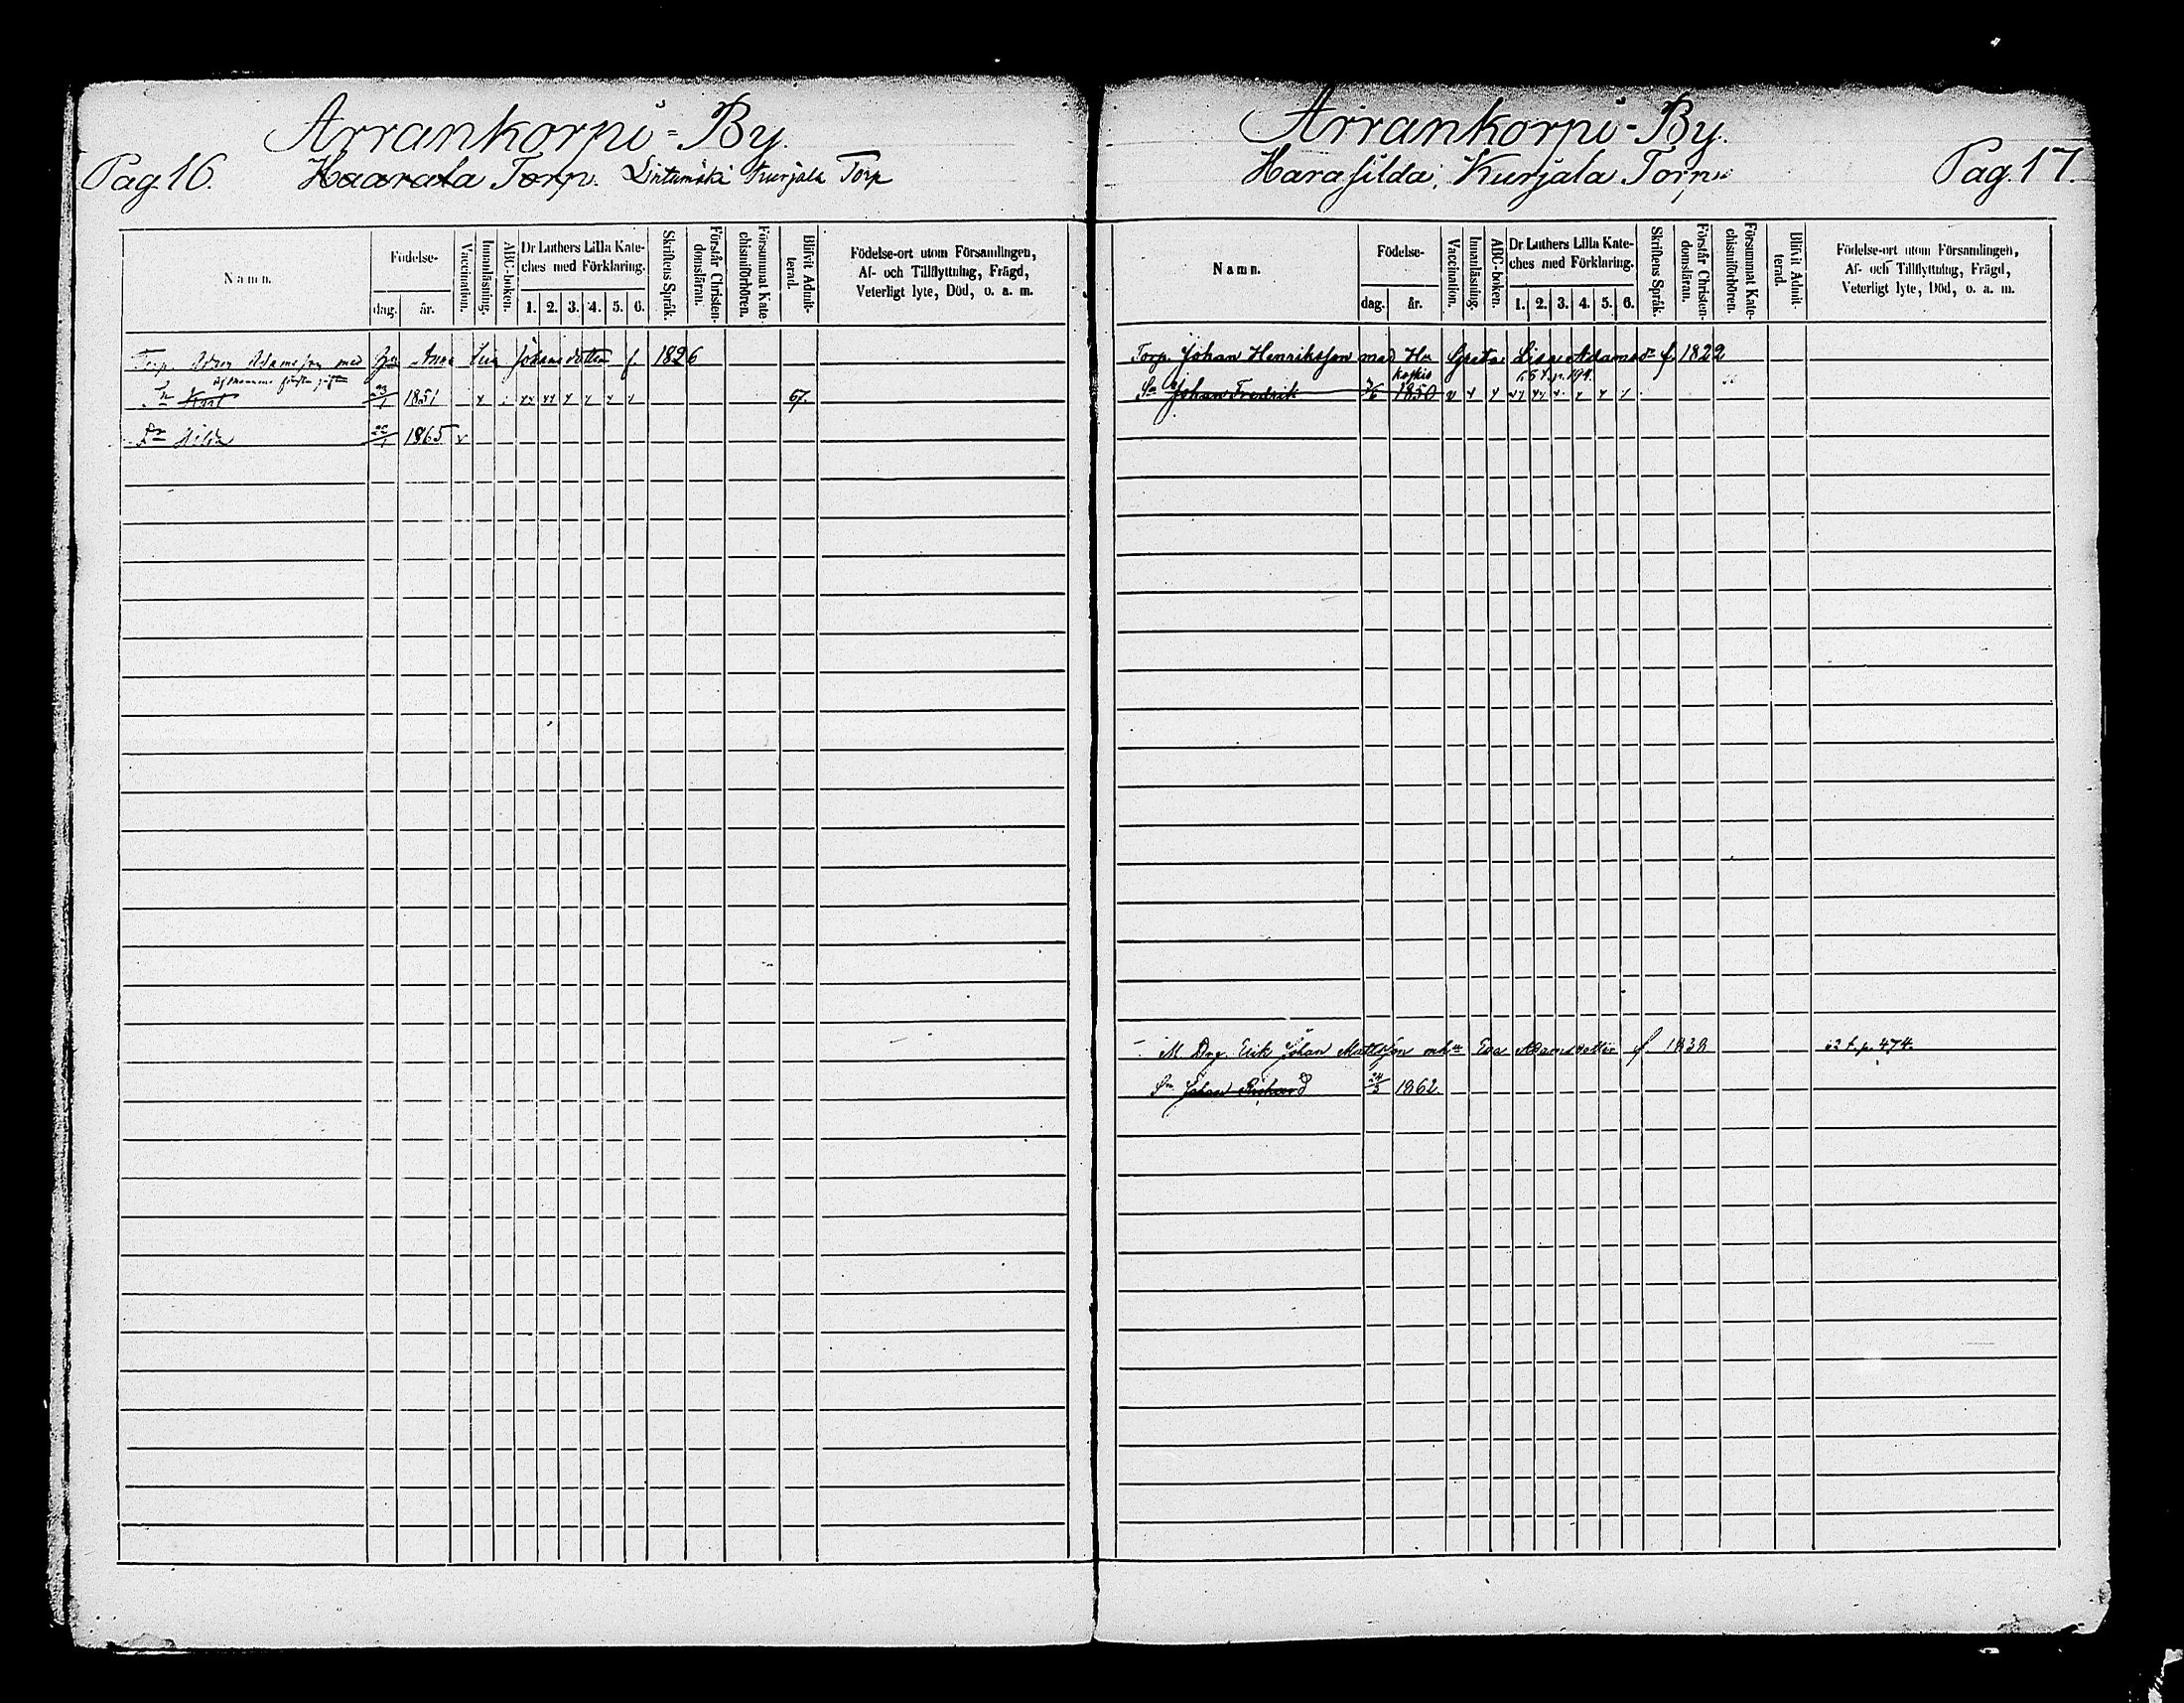 Arrankorpi=By.
Pag. 16. Haarala Torp. Lintumäki Kurjala Torp
Namn. Födelse- dag. år. Vaccination. Innanläsning. ABC-boken. Dr Luthers Lilla Kateches med Förklaring. 1. 2. 3. 4. 5. 6. Skriftens Språk. Förstår Christendomsläran. Försummat Katechismiförhören. Blifvit Admitterad. Födelse-ort utom Församlingen, Af- och Tillflyttning, Frägd, Veterligt lyte, Död, o. a. m.
Torp. Adamsson med Hu Anna Johansdotter f. 1826
Sn Karl 23/1 1851 67.
Dr Hilda 22/1 1865 v
Arrankorpi-By.
Harasilda, Kurjala Torp Pag. 17.
Namn. Födelse- dag. år. Vaccination. Innanläsning. ABC-boken. Dr Luthers Lilla Kateches med Förklaring. 1. 2. 3. 4. 5. 6. Skriftens Språk. Förstår Christendomsläran. Försummat Katechismiförhören. Blifvit Admitterad. Födelse-ort utom Församlingen, Af- och Tillflyttning, Frägd, Veterligt lyte, Död, o. a. m.
Torp. Johan Henriksson med Hu Greta Lisa Adamsdr f. 1822
t. p. 194.
Sn Johan Fredrik 1850
M Drg. Erik Johan Mattsson Eva Adamsdotter f. 1838 t. p. 474.
Sn Johan Richard 24/3 1862.